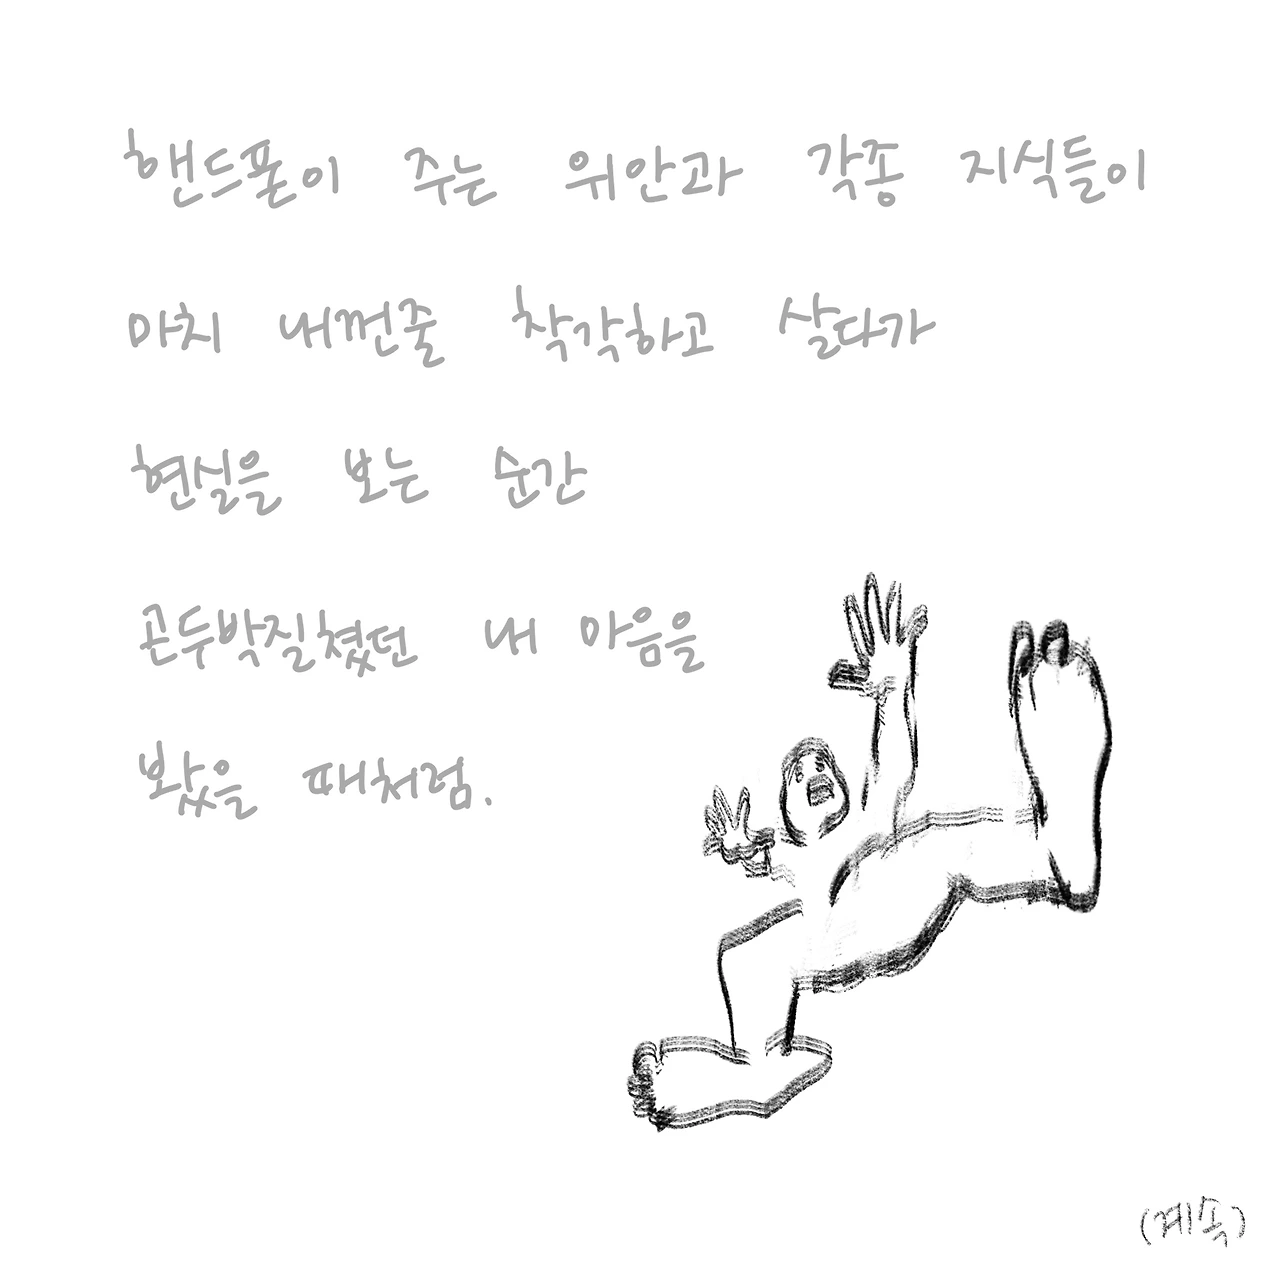 핸드폰이 주는 위안과 각종 지식들이
마치 내껀줄 착각하고 살다가
현실을 보는 순간
곤두박질쳤던 내 마음을
봤을 때처럼.
(계속)